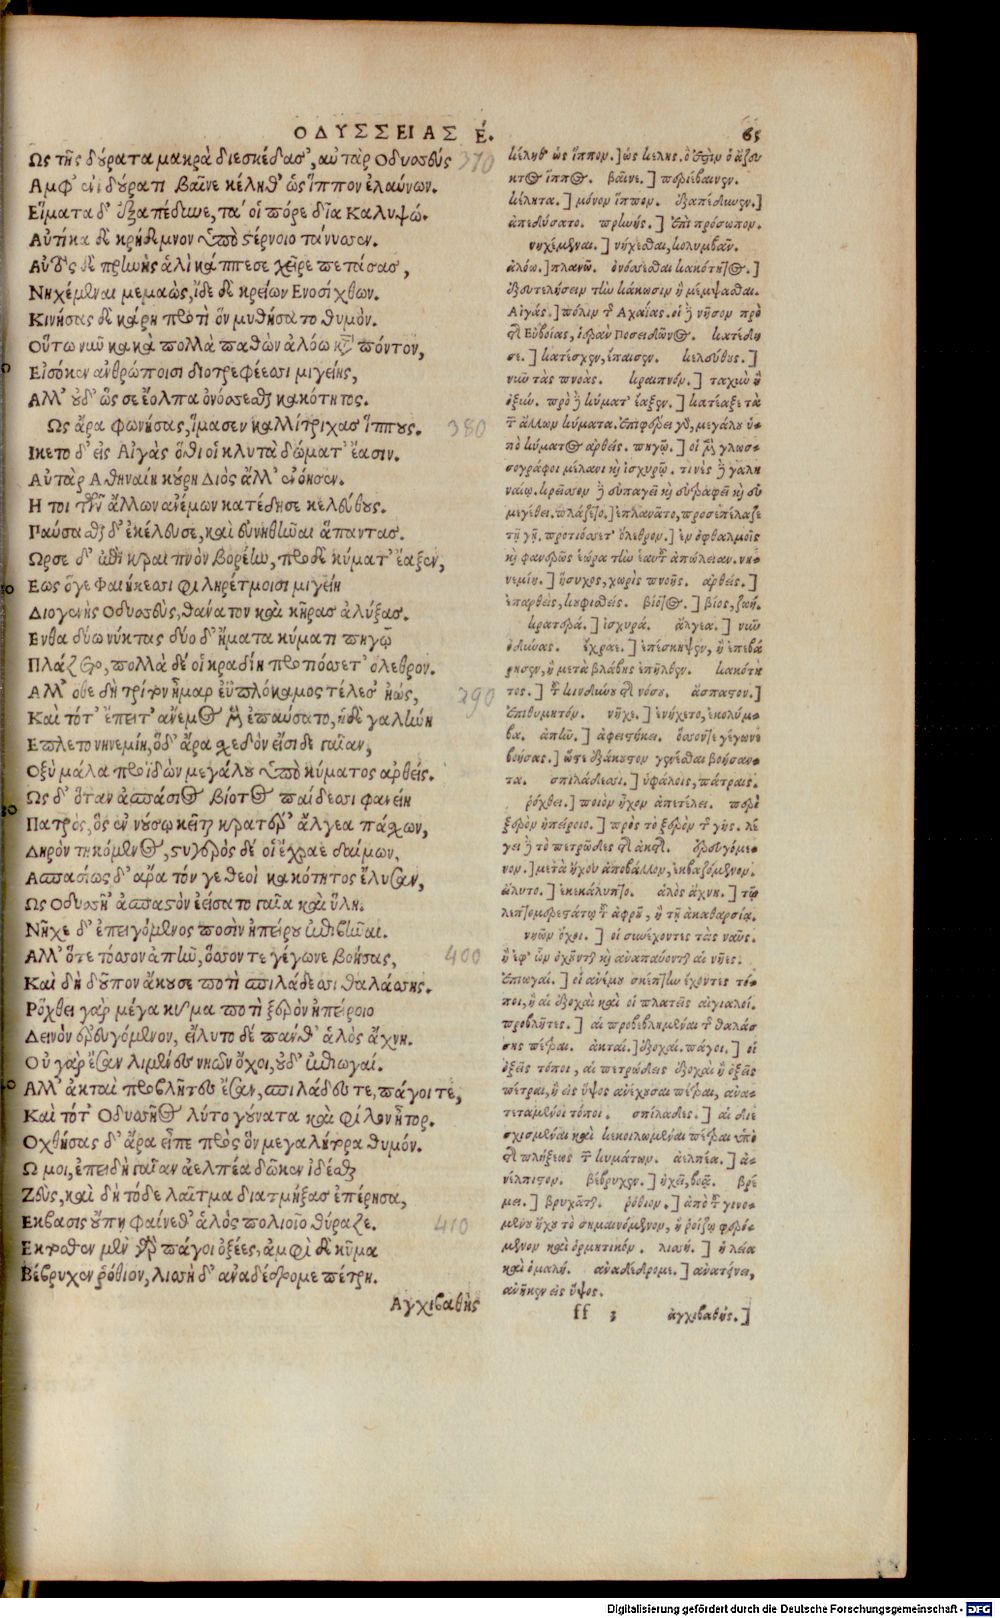 ΟΔΥΣΣΕΙΑΣ Ε.
65
Ως τῆς δούρατα μακρὰ διεσκέδασ', αὐτὰρ Οδυσσεὺς 370
Αμφ' ἑνὶ δούρατι βαῖνε κέληθ' ὡς ἵππον ἐλαύνων.
Εἵματα δ' ἐξαπέδυνε, τά οἱ πόρε δῖα Καλυψώ.
Αὐτίκα δὲ κρήδεμνον ὑπὸ στέρνοιο τάνυσεν.
Αὐτὸς δὲ πρηνὴς ἁλὶ κάππεσε χεῖρε πετάσας,
Νηχέμεναι μεμαὼς, ἴδε δὲ κρείων Ενοσίχθων.
Κινήσας δὲ κάρη προτὶ ὃν μυθήσατο θυμόν.
Οὕτω νῦν κακὰ πολλὰ παθὼν ἀλόω κατὰ πόντον,
Εἰσόκεν ἀνθρώποισι διοτρεφέεσσι μιγείης,
Αλλ' οὐδ' ὥς σε ἔολπα ὀνόσσεσθαι κακότητος.
Ως ἄρα φωνήσας, ἵμασεν καλλίτριχας ἵππους. 380
Ικετο δ' εἰς Αἰγὰς ὅθι οἱ κλυτὰ δώματ' ἔασιν.
Αὐτὰρ Αθηναίη κούρη Διὸς ἄλλ' ἐνόησεν.
Η τοι τῶν ἄλλων ἀνέμων κατέδησε κελεύθους.
Παύσασθαι δ' ἐκέλευσε, καὶ εὐνηθῆναι ἅπαντας.
Ωρσε δ' ἐπὶ κραιπνὸν βορέην, πρὸ δὲ κύματ' ἔαξεν,
Εως ὅγε Φαιήκεσσι φιληρέτμοισι μιγείη
Διογενὴς Οδυσσεὺς, θάνατον καὶ κῆρας ἀλύξας.
Ενθα δύω νύκτας δύο δ' ἤματα κύματι πηγῷ
Πλάζετο, πολλὰ δέ οἱ κραδίη προτιόσσετ' ὄλεθρον.
Αλλ' ὅτε δὴ τρίτον ἦμαρ ἐϋπλόκαμος τέλεσ' ἠὼς, 390
Καὶ τότ' ἔπειτ' ἄνεμος μὲν ἐπαύσατο, ἡ δὲ γαλήνη
Επλετο νηνεμίη, ὅδ' ἄρα σχεδὸν εἴσιδε γαῖαν,
Οξὺ μάλα προϊδὼν μεγάλου ὑπὸ κύματος ἀρθείς.
Ως δ' ὅταν ἀσπάσιος βίοτος παίδεσσι φανείη
Πατρὸς, ὃς ἐν νούσῳ κεῖται κρατέρ' ἄλγεα πάσχων,
Δηρὸν τηκόμενος, στυγερὸς δέ οἱ ἔχραε δαίμων,
Ασπασίως δ' ἄρα τόν γε θεοὶ κακότητος ἔλυσαν,
Ως Οδυσῆϊ ἀσπαστὸν ἐείσατο γαῖα καὶ ὕλη.
Νῆχε δ' ἐπειγόμενος ποσὶν ἠπείρου ἐπιβῆναι.
Αλλ' ὅτε τόσσον ἀπῆν, ὅσσον τε γέγωνε βοήσας, 400
Καὶ δὴ δοῦπον ἄκουσε ποτὶ σπιλάδεσσι θαλάσσης.
Ρόχθει γὰρ μέγα κῦμα ποτὶ ξερὸν ἠπείροιο
Δεινὸν ἐρευγόμενον, εἴλυτο δέ πανθ' ἁλὸς ἄχνη.
Οὐ γὰρ ἔσαν λιμένες νηῶν ὄχοι, οὐδ' ἐπιωγαί.
Αλλ' ἀκταὶ προβλῆτες ἔσαν, σπιλάδες τε, πάγοι τε,
Καὶ τότ' Οδυσσῆος λύτο γούνατα καὶ φίλον ἦτορ.
Οχθήσας δ' ἄρα εἶπε πρὸς ὃν μεγαλήτορα θυμόν.
Ω μοι, ἐπειδὴ γαῖαν ἀελπέα δῶκεν ἰδέσθαι
Ζεὺς, καὶ δὴ τόδε λαῖτμα διατμήξας ἐπέρησα,
Εκβασις οὔπη φαίνεθ' ἁλὸς πολιοῖο θύραζε. 410
Εκτοσθεν μὲν γὰρ πάγοι ὀξέες, ἀμφὶ δὲ κῦμα
Βέβρυχεν ῥόθιον, λισσὴ δ' ἀναδέδρομε πέτρη.
Αγχιβαθὴς
κέληθ' ὡς ἵππον.] ὡς κέλης. ὅ ἐστιν ὁ ἄζευ
κτος ἵππος. βαῖνε.] περιέβαινεν.
κέλητα.] μόνον ἵππον. ἐξαπέδυνεν.]
ἀπεδύσατο. πρηνής.] ἐπὶ πρόσωπον.
νηχέμεναι.] νήχεσθαι, κολυμβᾶν.
ἀλόω.] πλανῶ. ὀνόσσεσθαι κακότητος.]
ἐξευτελήσειν τὴν κάκωσιν ἢ μέμψασθαι.
Αἰγάς.] πόλιν τῆς Αχαΐας. οἱ δὲ νῆσον πρὸ
τῆς Εὐβοίας, ἱερὰν Ποσειδῶνος. κατέδη
σε.] κατέσχεν, ἔπαυσεν. κελεύθους.]
νῦν τὰς πνοάς. κραιπνόν.] ταχὺν ἢ
ὀξύν. πρὸ δὲ κύματ' ἔαξεν.] κατέαξε τὰ
τῶν ἄλλων κύματα. ἐπιφέρει γοῦν, μεγάλου ὑ-
πὸ κύματος ἀρθείς. πηγῷ.] οἱ μὲν γλωσ-
σογράφοι μέλανι καὶ ἰσχυρῷ. τινὲς δὲ γαλη
ναίῳ. κρεῖσσον δὲ εὐπαγεῖ καὶ εὐτραφεῖ καὶ εὐ
μεγέθει. πλάζετο.] ἐπλανᾶτο, προσεπέλαζε
τῇ γῇ. προτιόσσετ' ὄλεθρον.] ἐν ὀφθαλμοῖς
καὶ φανερῶς ἑώρα τὴν ἑαυτοῦ ἀπώλειαν. νη-
νεμίη.] ἥσυχος, χωρὶς πνοῆς. ἀρθείς.]
ἐπαρθεὶς, κουφισθείς. βίοτος.] βίος, ζωή.
κρατερά.] ἰσχυρά. ἄλγεα.] νῦν
ὀδύνας. ἔχραε.] ἐπέσκηψεν, ἢ ἐπεβά
ρησεν, ἢ μετὰ βλάβης ἐπῆλθεν. κακότη
τος.] τοῦ κινδύνου τῆς νόσου. ἀσπαστον.]
ἐπιθυμητόν. νῆχε.] ἐνήχετο, ἐκολύμ-
βα. ἀπῆν.] ἀφειστήκει. ὅσσον τε γέγωνε
βοήσας.] ὥστε ἐξάκουστον γενέσθαι βοήσαν-
τα. σπιλάδεσσι.] ὑφάλοις, πέτραις.
ῥόχθει.] ποιὸν ἦχον ἀπετέλει. περὶ
ξερὸν ἠπείροιο.] πρὸς τὸ ξερὸν τῆς γῆς. λέ
γει δὲ τὸ πετρῶδες τῆς ἀκτῆς. ἐρευγόμε-
νον.] μετὰ ἤχου ἀποβάλλον, ἐκβραζόμενον.
εἴλυτο.] ἐκεκάλυπτο. ἁλὸς ἄχνη.] τῷ
λεπτομερεστάτῳ τοῦ ἀφροῦ, ἢ τῇ ἀκαθαρσίᾳ.
νηῶν ὄχοι.] οἱ συνέχοντες τὰς ναῦς.
ἢ ἐφ' ὧν ὀχοῦνται καὶ ἀναπαύονται αἱ νῆες.
ἐπιωγαί.] οἱ ἀνέμου σκέπην ἔχοντες τό-
ποι, ἢ αἱ ἐξοχαὶ καὶ οἱ πλατεῖς αἰγιαλοί.
προβλῆτες.] αἱ προβεβλημέναι τῆς θαλάσ
σης πέτραι. ἀκταί.] ἐξοχαί. πάγοι.] οἱ
ὀξεῖς τόποι, αἱ πετρώδεις ἐξοχαὶ ἢ ὀξεῖς
πέτραι, ἢ εἰς ὕψος ἀνέχουσαι πέτραι, ἀνα-
τεταμένοι τόποι. σπιλάδες.] αἱ διε
σχισμέναι καὶ κεκοιλωμέναι πέτραι ὑπὸ
τῆς πλήξεως τῶν κυμάτων. ἀελπέα.] ἀ-
νέλπιστον. βέβρυχεν.] ἠχεῖ, βοᾷ. βρέ
μει.] βρυχᾶται. ῥόθιον.] ἀπὸ τοῦ γινο-
μένου ἤχου τὸ σημαινόμενον, ἢ ῥοίζῳ φερό-
μενον καὶ ὁρμητικόν. λισσή.] ἡ λεία
καὶ ὁμαλή. ἀναδέδρομε.] ἀνατείνει,
ἀνῆκεν εἰς ὕψος.
ff 3 ἀγχιβαθής.]
Digitalisierung gefördert durch die Deutsche Forschungsgemeinschaft - DFG